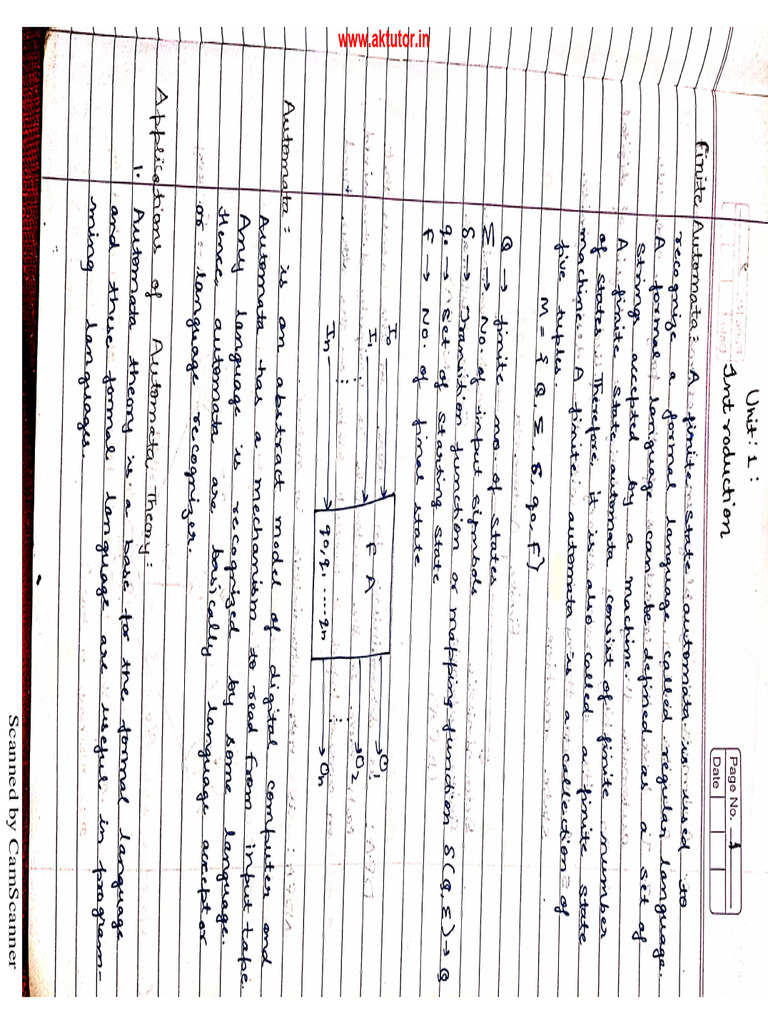 www.aktutor.in
Page No. 1
Date
Unit: 1:
Introduction
Finite Automata: A finite state automata is used to
recognize a formal language called regular language.
A formal language can be defined as a set of
strings accepted by a machine.
A finite state automata consist of finite number
of states. Therefore, it is also called a finite state
machine. A finite automata is a collection of
five tuples.
M = { Q, Σ, δ, q0, F }
Q → finite no. of states
Σ → No. of input symbols
δ → Transition function or mapping function δ(Q, Σ) → Q
q0 → set of starting state
F → No. of final state
I0
I1
⋮
In
F A
q0, q1 .... qn
O1
O2
⋮
On
Automata: is an abstract model of digital computer and
Automata has a mechanism to read from input tape.
Any language is recognized by some language.
Hence, automata are basically language acceptor
or language recognizer.
Applications of Automata Theory:
1. Automata theory is a base for the formal language
and these formal language are useful in program-
ming languages.
Scanned by CamScanner